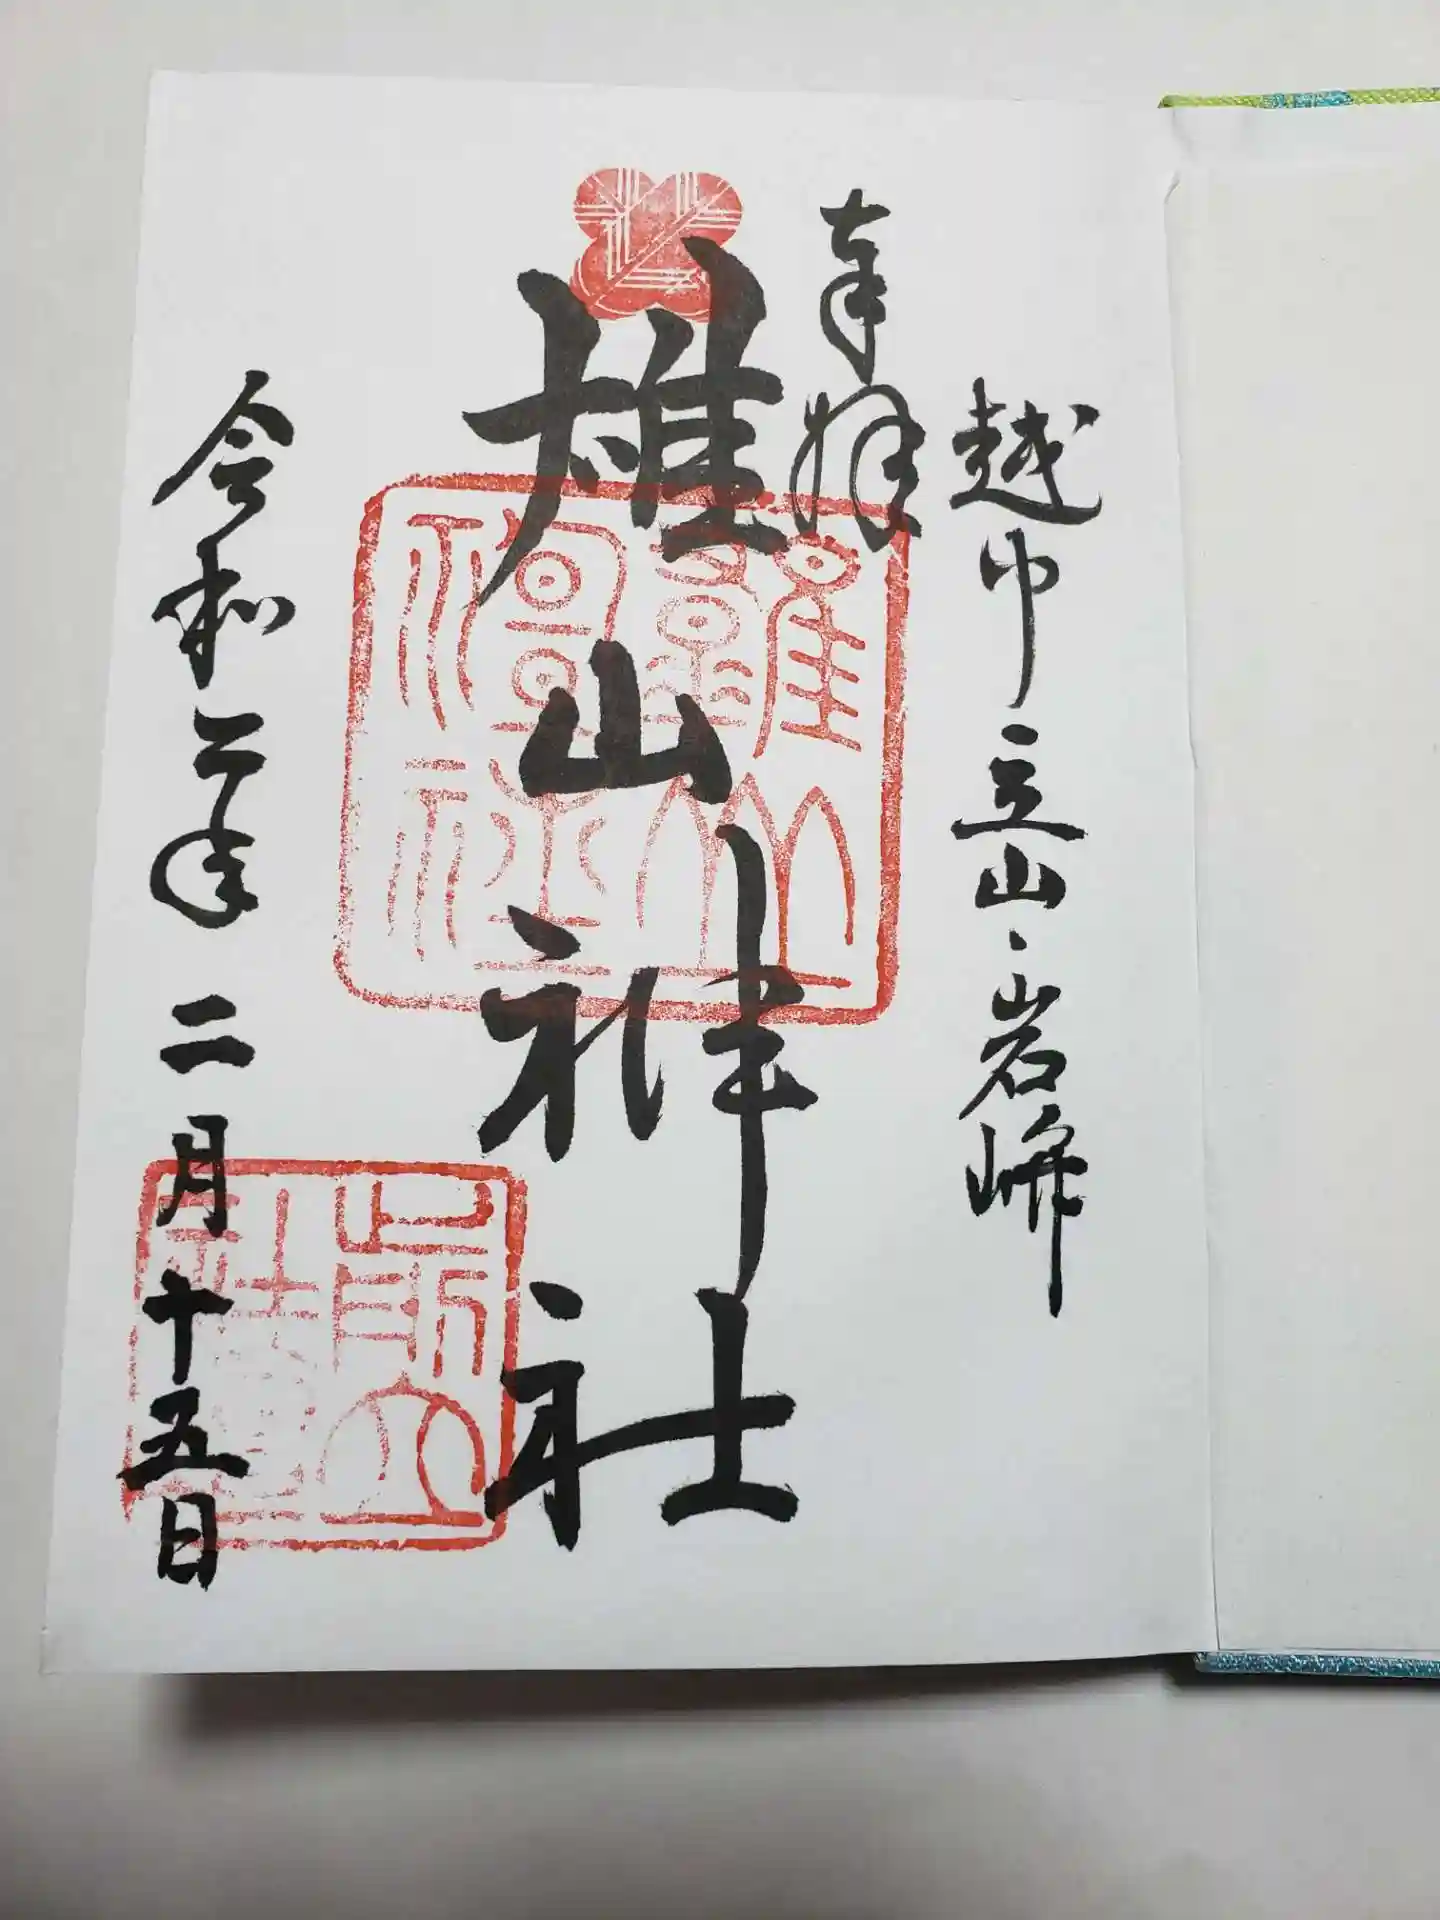 越中立山・岩峅
奉拝
雄山神社
令和二年二月十五日
雄山神社